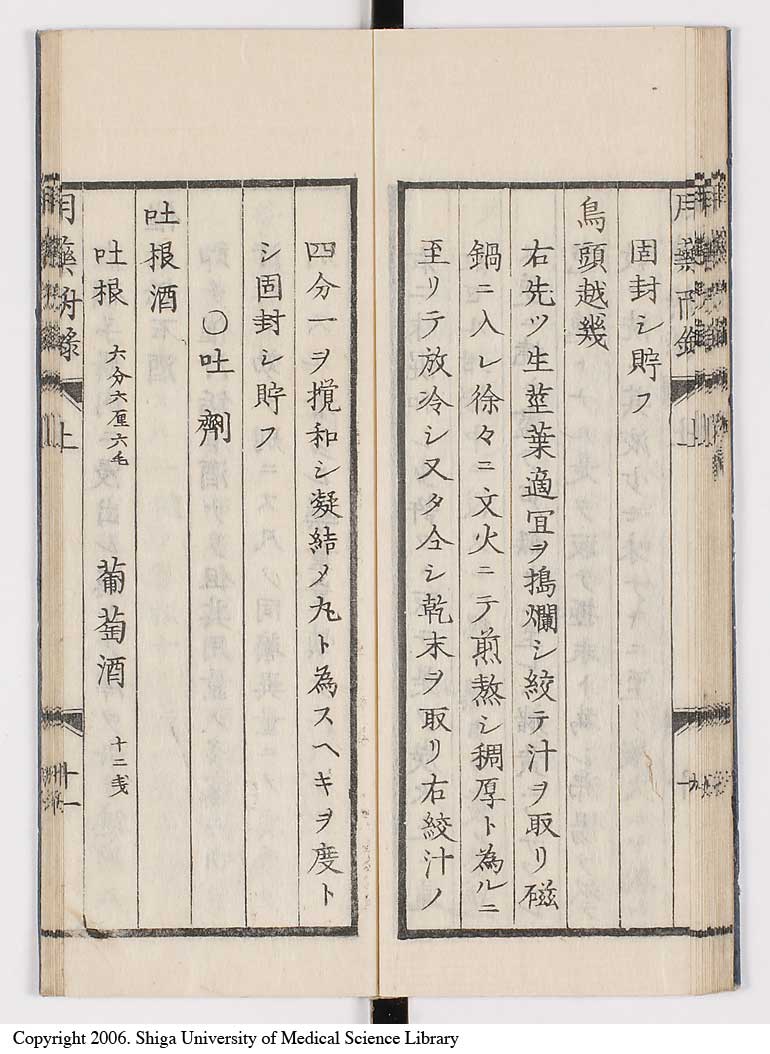 固封シ貯フ
烏頭越幾
右先ツ生莖葉適宜ヲ搗爛シ絞テ汁ヲ取リ磁
鍋ニ入レ徐々ニ文火ニテ煎熬シ稠厚ト為ルニ
至リテ放冷シ又タ仝シ乾末ヲ取リ右絞汁ノ
四分一ヲ攪和シ凝結〆丸ト為スヘキヲ度ト
シ固封シ貯フ
○吐劑
吐根酒
吐根 六分六厘六毛 葡萄酒 十二戔
上
十一
Copyright 2006. Shiga University of Medical Science Library